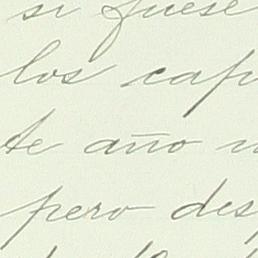 si fuese
los cap
te año
pero des